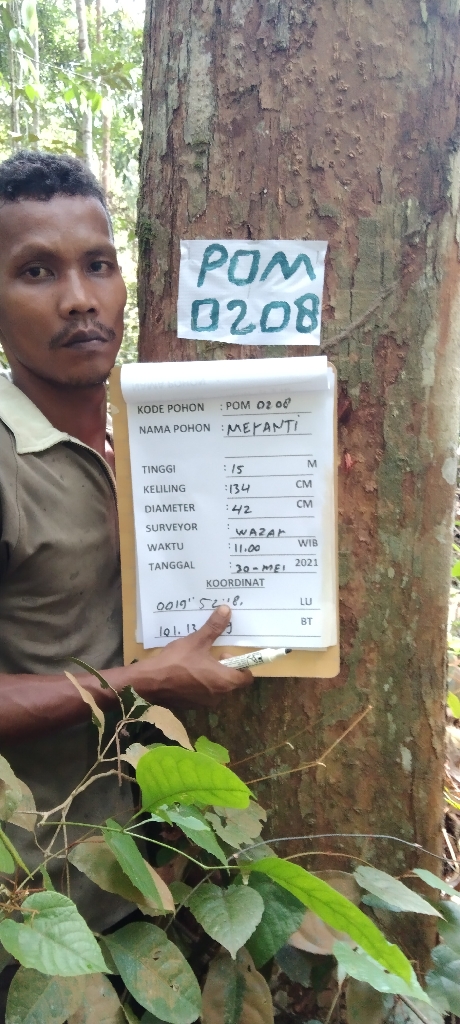 POM
0208
KODE POHON : POM 0208
NAMA POHON : MERANTI
TINGGI : 15 M
KELILING : 134 CM
DIAMETER : 42 CM
SURVEYOR :
WAKTU : 11.00 WIB
TANGGAL : 30-MEI 2021
KOORDINAT
LU
BT